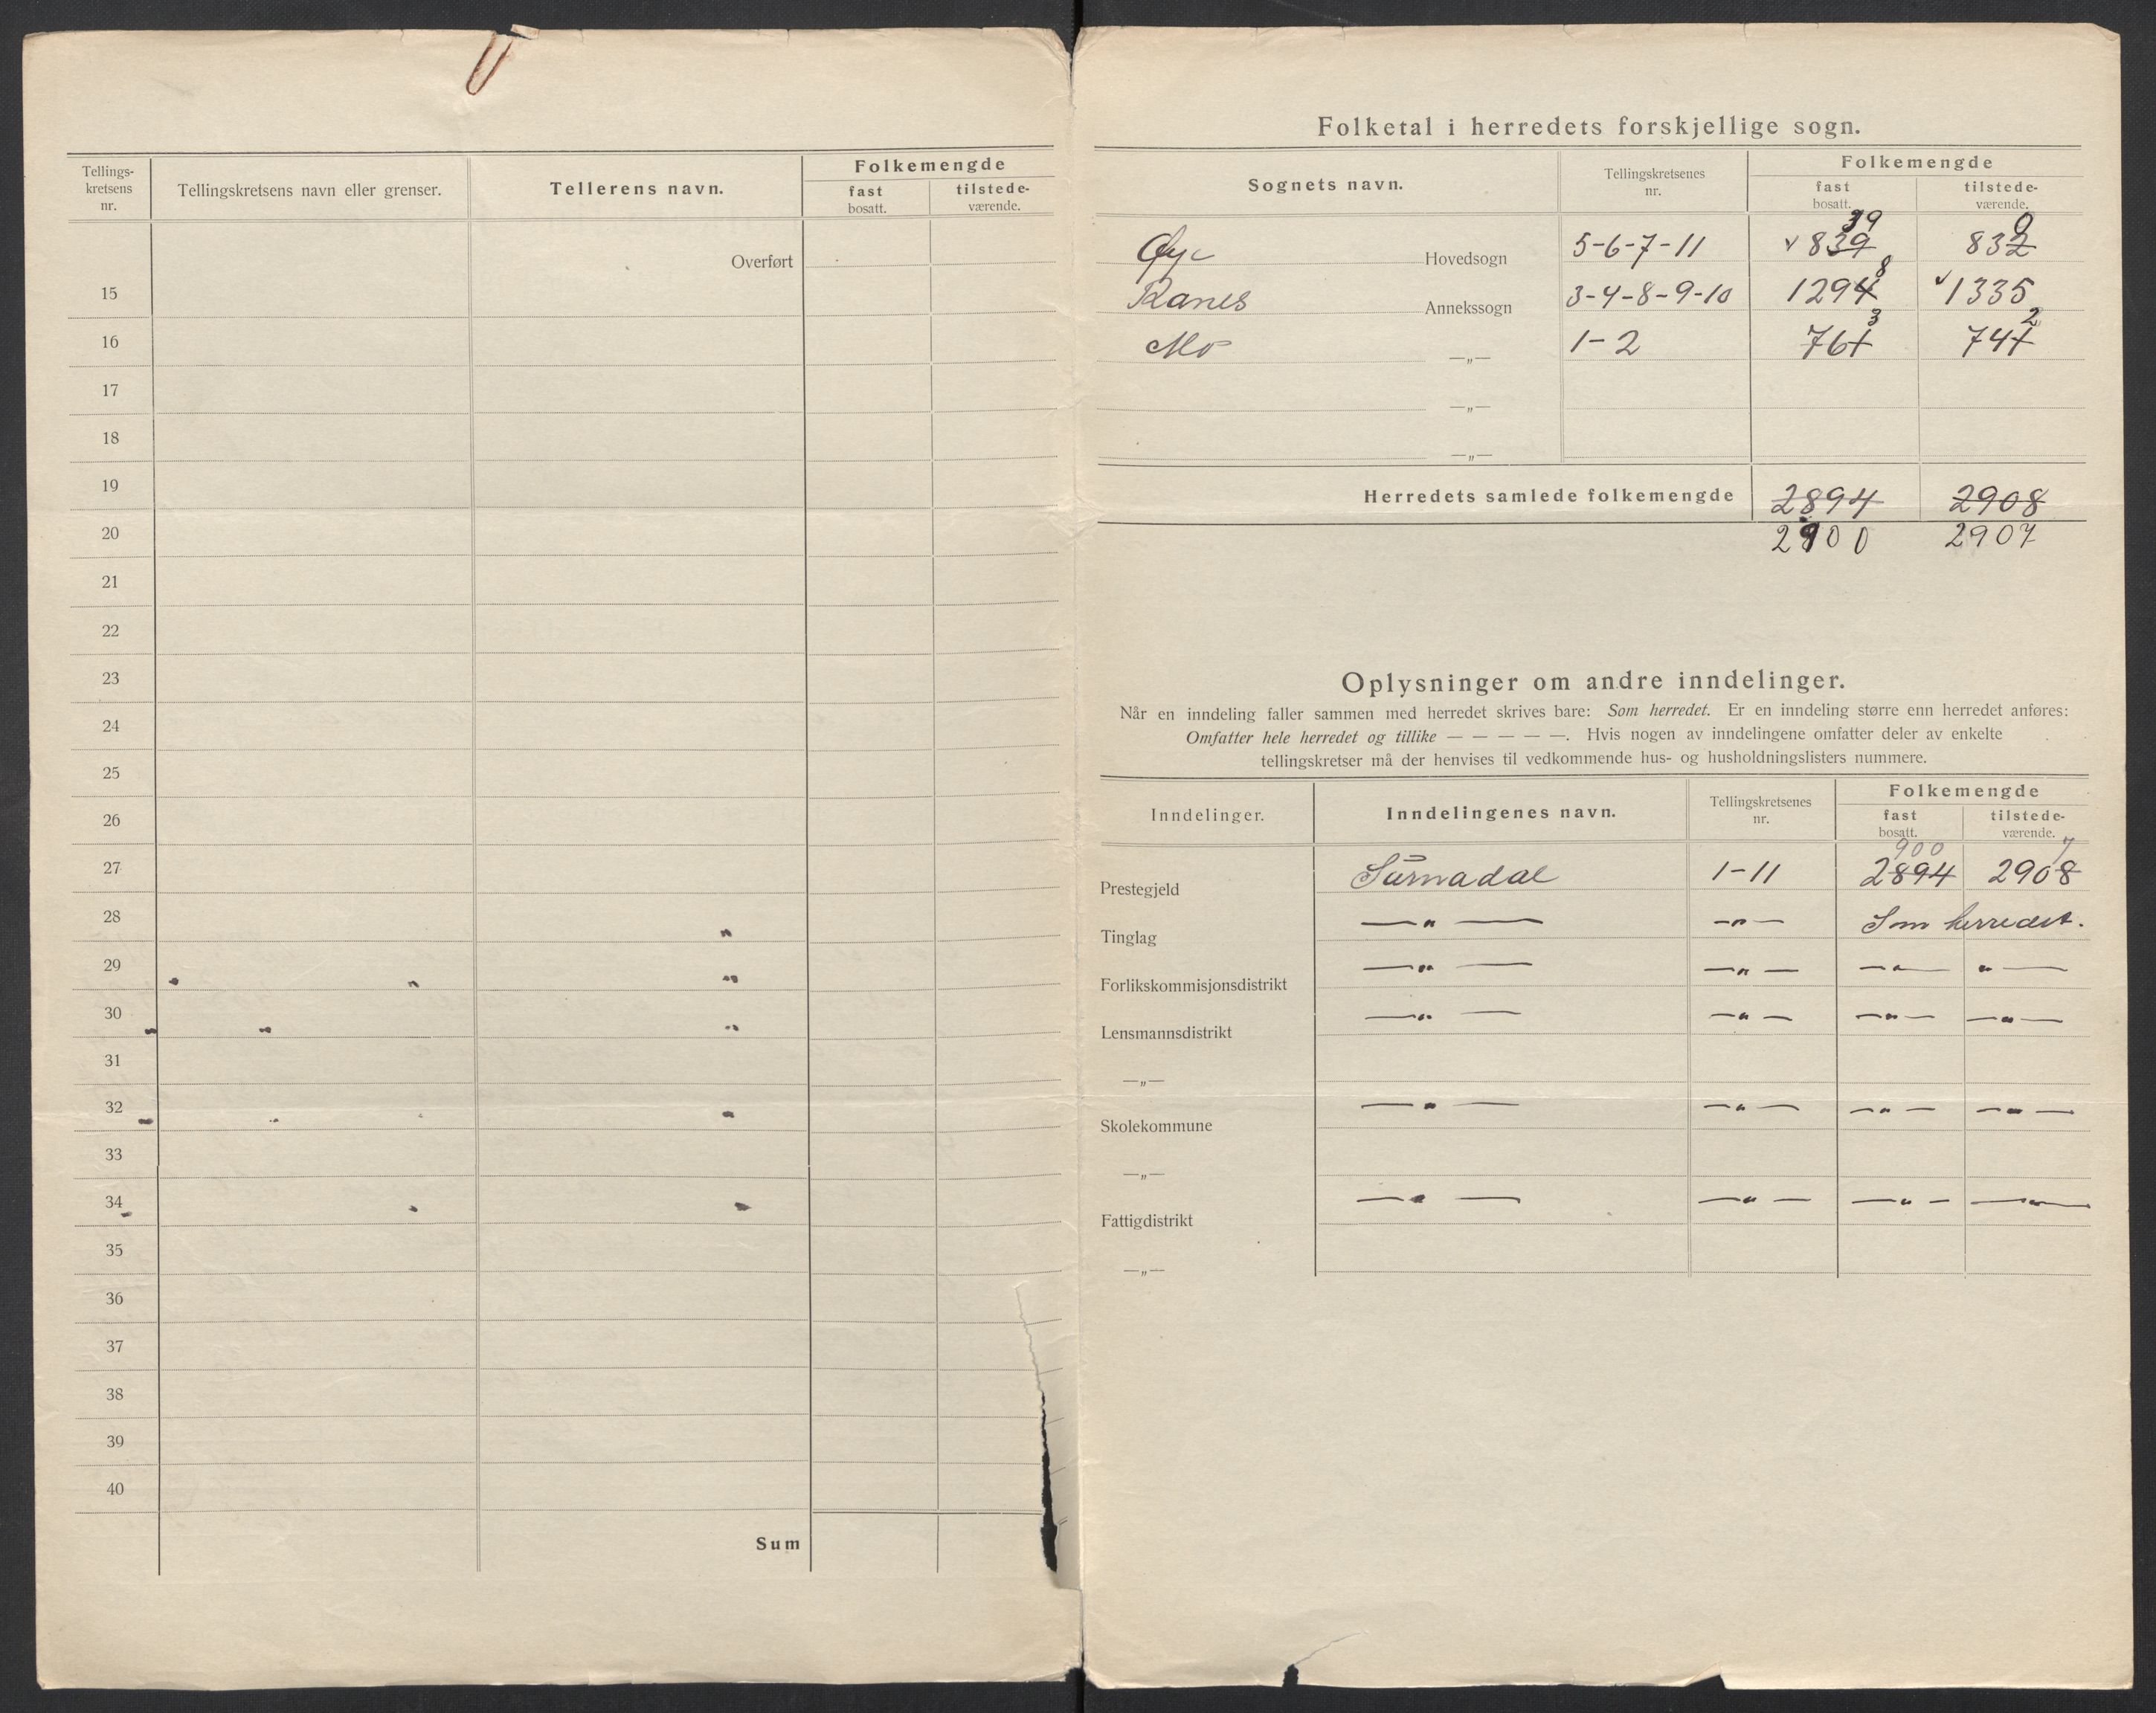 Tellings-kretsens nr. | Tellingskretsens navn eller grenser. | Tellerens navn. | Folkemengde
fast bosatt. | tilstede-værende.
Overført
15
16
17
18
19
20
21
22
23
24
25
26
27
28
29
30
31
32
33
34
35
36
37
38
39
40
Sum
Folketal i herredets forskjellige sogn.
Sognets navn. | Tellingskretsenes nr. | Folkemengde
fast bosatt. | tilstede-værende.
39 | 0
Øye Hovedsogn | 5-6-7-11 | 839 | 832
8
Ranes Annekssogn | 3-4-8-9-10 | 1294 | 1335
3 | 2
Mo —„— | 1-2 | 761 | 741
—„—
—„—
Herredets samlede folkemengde | 2894 | 2908
2900 | 2907
Oplysninger om andre inndelinger.
Når en inndeling faller sammen med herredet skrives bare: Som herredet. Er en inndeling større enn herredet anføres:
Omfatter hele herredet og tillike — — — — —. Hvis nogen av inndelingene omfatter deler av enkelte
tellingskretser må der henvises til vedkommende hus- og husholdningslisters nummere.
Inndelinger. | Inndelingenes navn. | Tellingskretsenes nr. | Folkemengde
fast bosatt. | tilstede-værende.
900 | 7
Prestegjeld | Surnadal | 1-11 | 2894 | 2908
Tinglag | —„— | —„— | Som herredet.
Forlikskommisjonsdistrikt | —„— | —„— | —„— | „—
Lensmannsdistrikt | —„— | —„— | —„— | —„—
—„—
Skolekommune | —„— | —„— | —„— | —„—
—„—
Fattigdistrikt | —„— | —„— | —„— | —„—
—„—